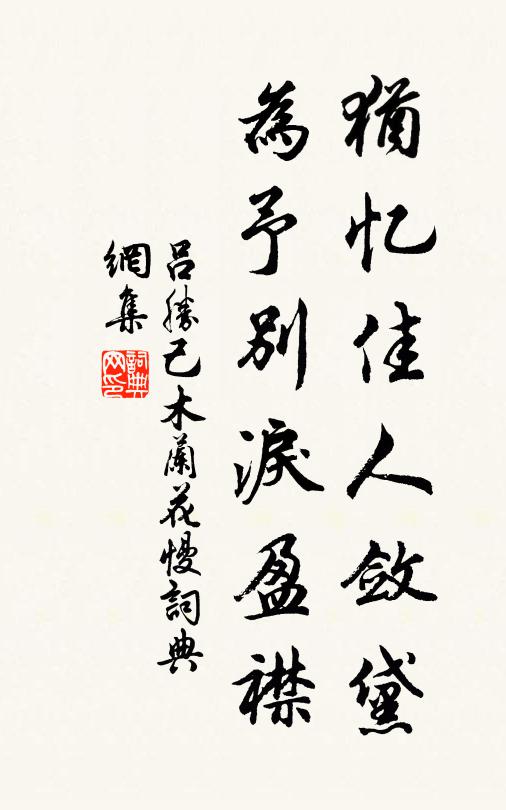 猶忆佳人斂黛
為予別淚盈襟
呂勝己木蘭花慢詞典
網集
詞典网印